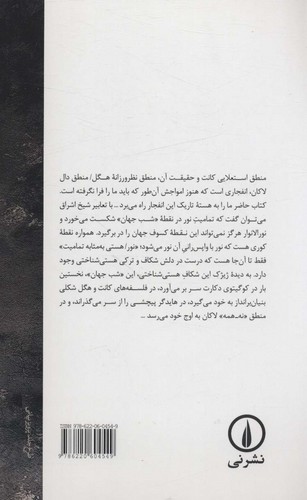 منطق استعلایی کانت و حقیقت آن، منطق نظرورزانهٔ هگل/ منطق دال
لاکان، انفجاری است که هنوز امواجش آن‌طور که باید ما را فرا نگرفته است.
کتاب حاضر ما را به هستهٔ تاریک این انفجار راه می‌برد ... با تعابیر شیخ اشراق
می‌توان گفت که تمامیتِ نور در نقطهٔ «شب جهان» شکست می‌خورد و
نورالانوار هرگز نمی‌تواند این نقطهٔ کسوف جهان را دربرگیرد. همواره نقطهٔ
کوری هست که نور با واپس‌رانیِ آن نور می‌شود؛ «نور/هستی به‌مثابه تمامیت»
فقط تا آن‌جا هست که درست در دلش شکاف و ترکی هستی‌شناختی وجود
دارد. به دیدهٔ ژیژک این شکافِ هستی‌شناختی، این «شب جهان»، نخستین
بار در کوگیتوی دکارت سر بر می‌آورد، در فلسفه‌های کانت و هگل شکلی
بنیان‌برانداز به خود می‌گیرد، در هایدگر پیچشی را از سر می‌گذراند، و در
منطق «نه‌ـ‌همه» لاکان به اوج خود می‌رسد ...
ISBN 978-622-06-0454-9
9 786220 604549
نشرنی